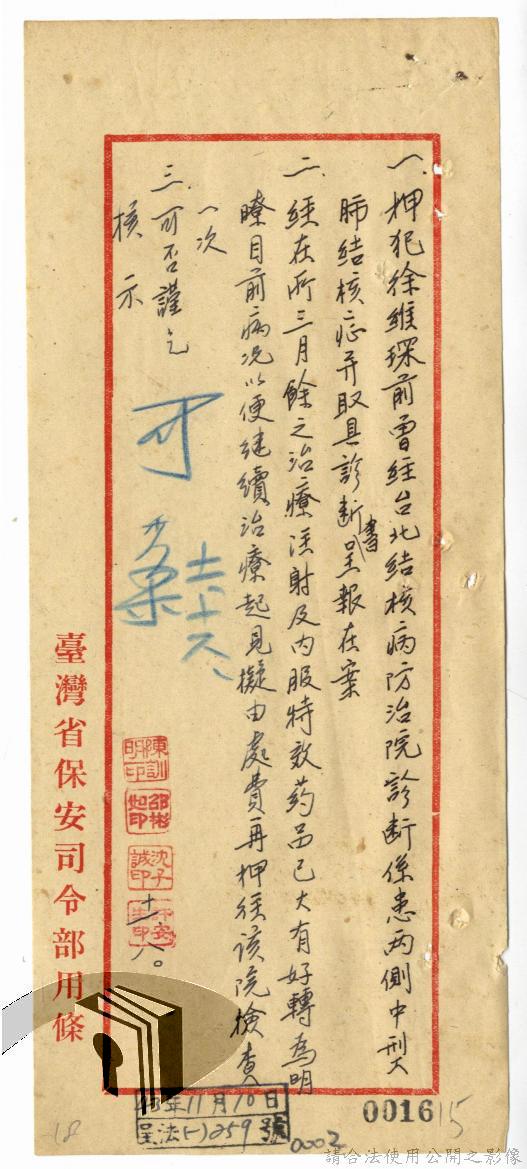 一、押犯徐維琛前曾經台北結核病防治院診断係患两側中刑
肺結核症并取具診断書呈報在案
二、經在所三月餘之治療注射及內服特效药品已大有好轉為明
瞭目前病况以便継續治療起見擬由處費再押往該院檢查
一次
三、可否謹乞
核示
可
陳訓明印
沈子誠印
臺灣省保安司令部用條
43年11月10日
呈法(一)259號
0002
0016
15
18
請合法使用公開之影像